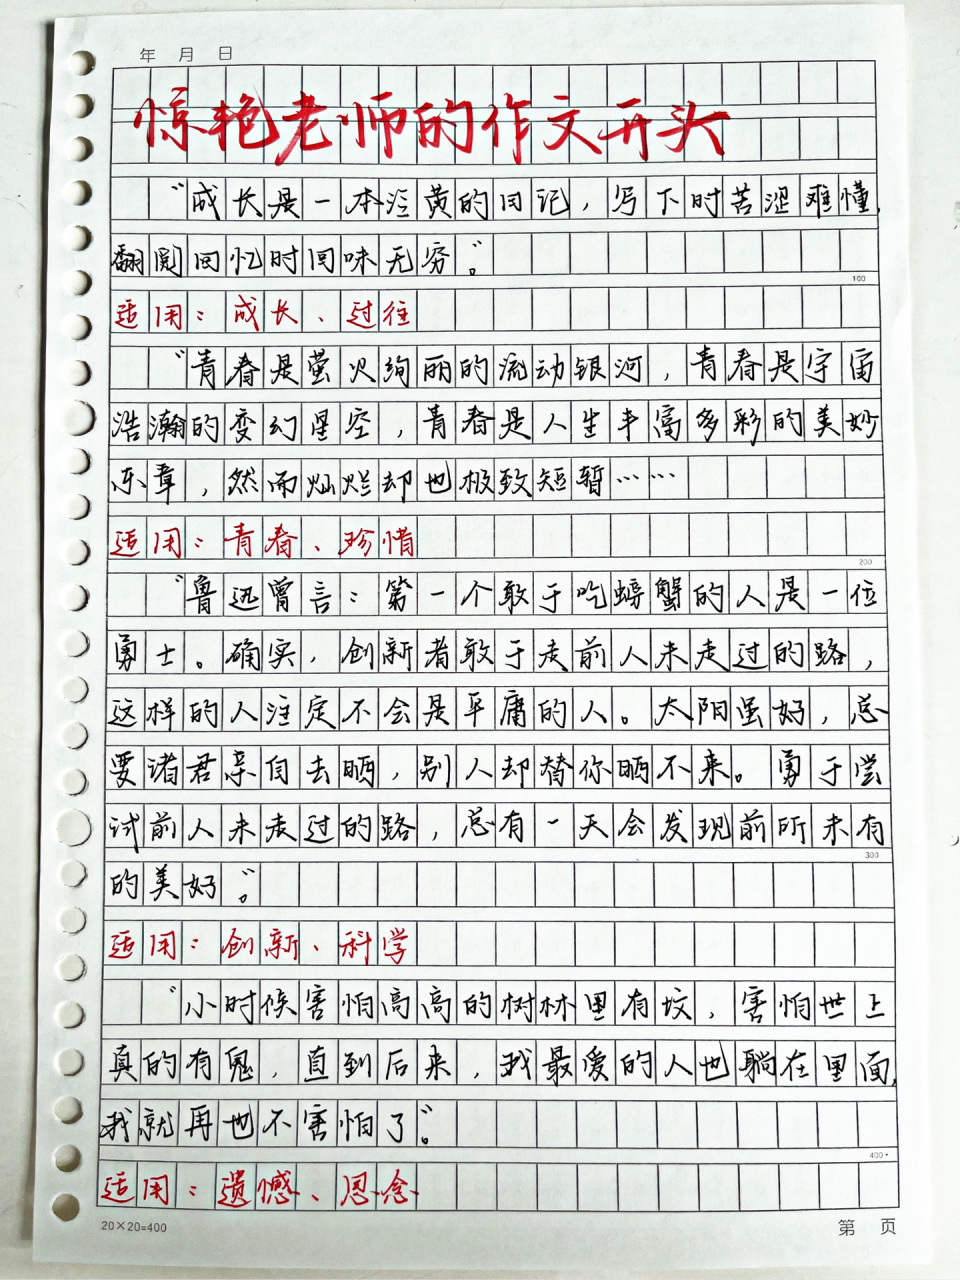 年 月 日
惊艳老师的作文开头
“成长是一本泛黄的日记，写下时苦涩难懂，
翻阅回忆时回味无穷。”
100
适用：成长、过往
“青春是萤火绚丽的流动银河，青春是宇宙
浩瀚的变幻星空，青春是人生丰富多彩的美妙
乐章，然而灿烂却也极致短暂……
适用：青春、珍惜
200
“鲁迅曾言：第一个敢于吃螃蟹的人是一位
勇士。确实，创新者敢于走前人未走过的路，
这样的人注定不会是平庸的人。太阳虽好，总
要诸君亲自去晒，别人却替你晒不来。勇于尝
试前人未走过的路，总有一天会发现前所未有
300
的美好。”
适用：创新、科学
“小时候害怕高高的树林里有坟，害怕世上
真的有鬼，直到后来，我最爱的人也躺在里面，
我就再也不害怕了。”
400
适用：遗憾、思念
20×20=400
第 页